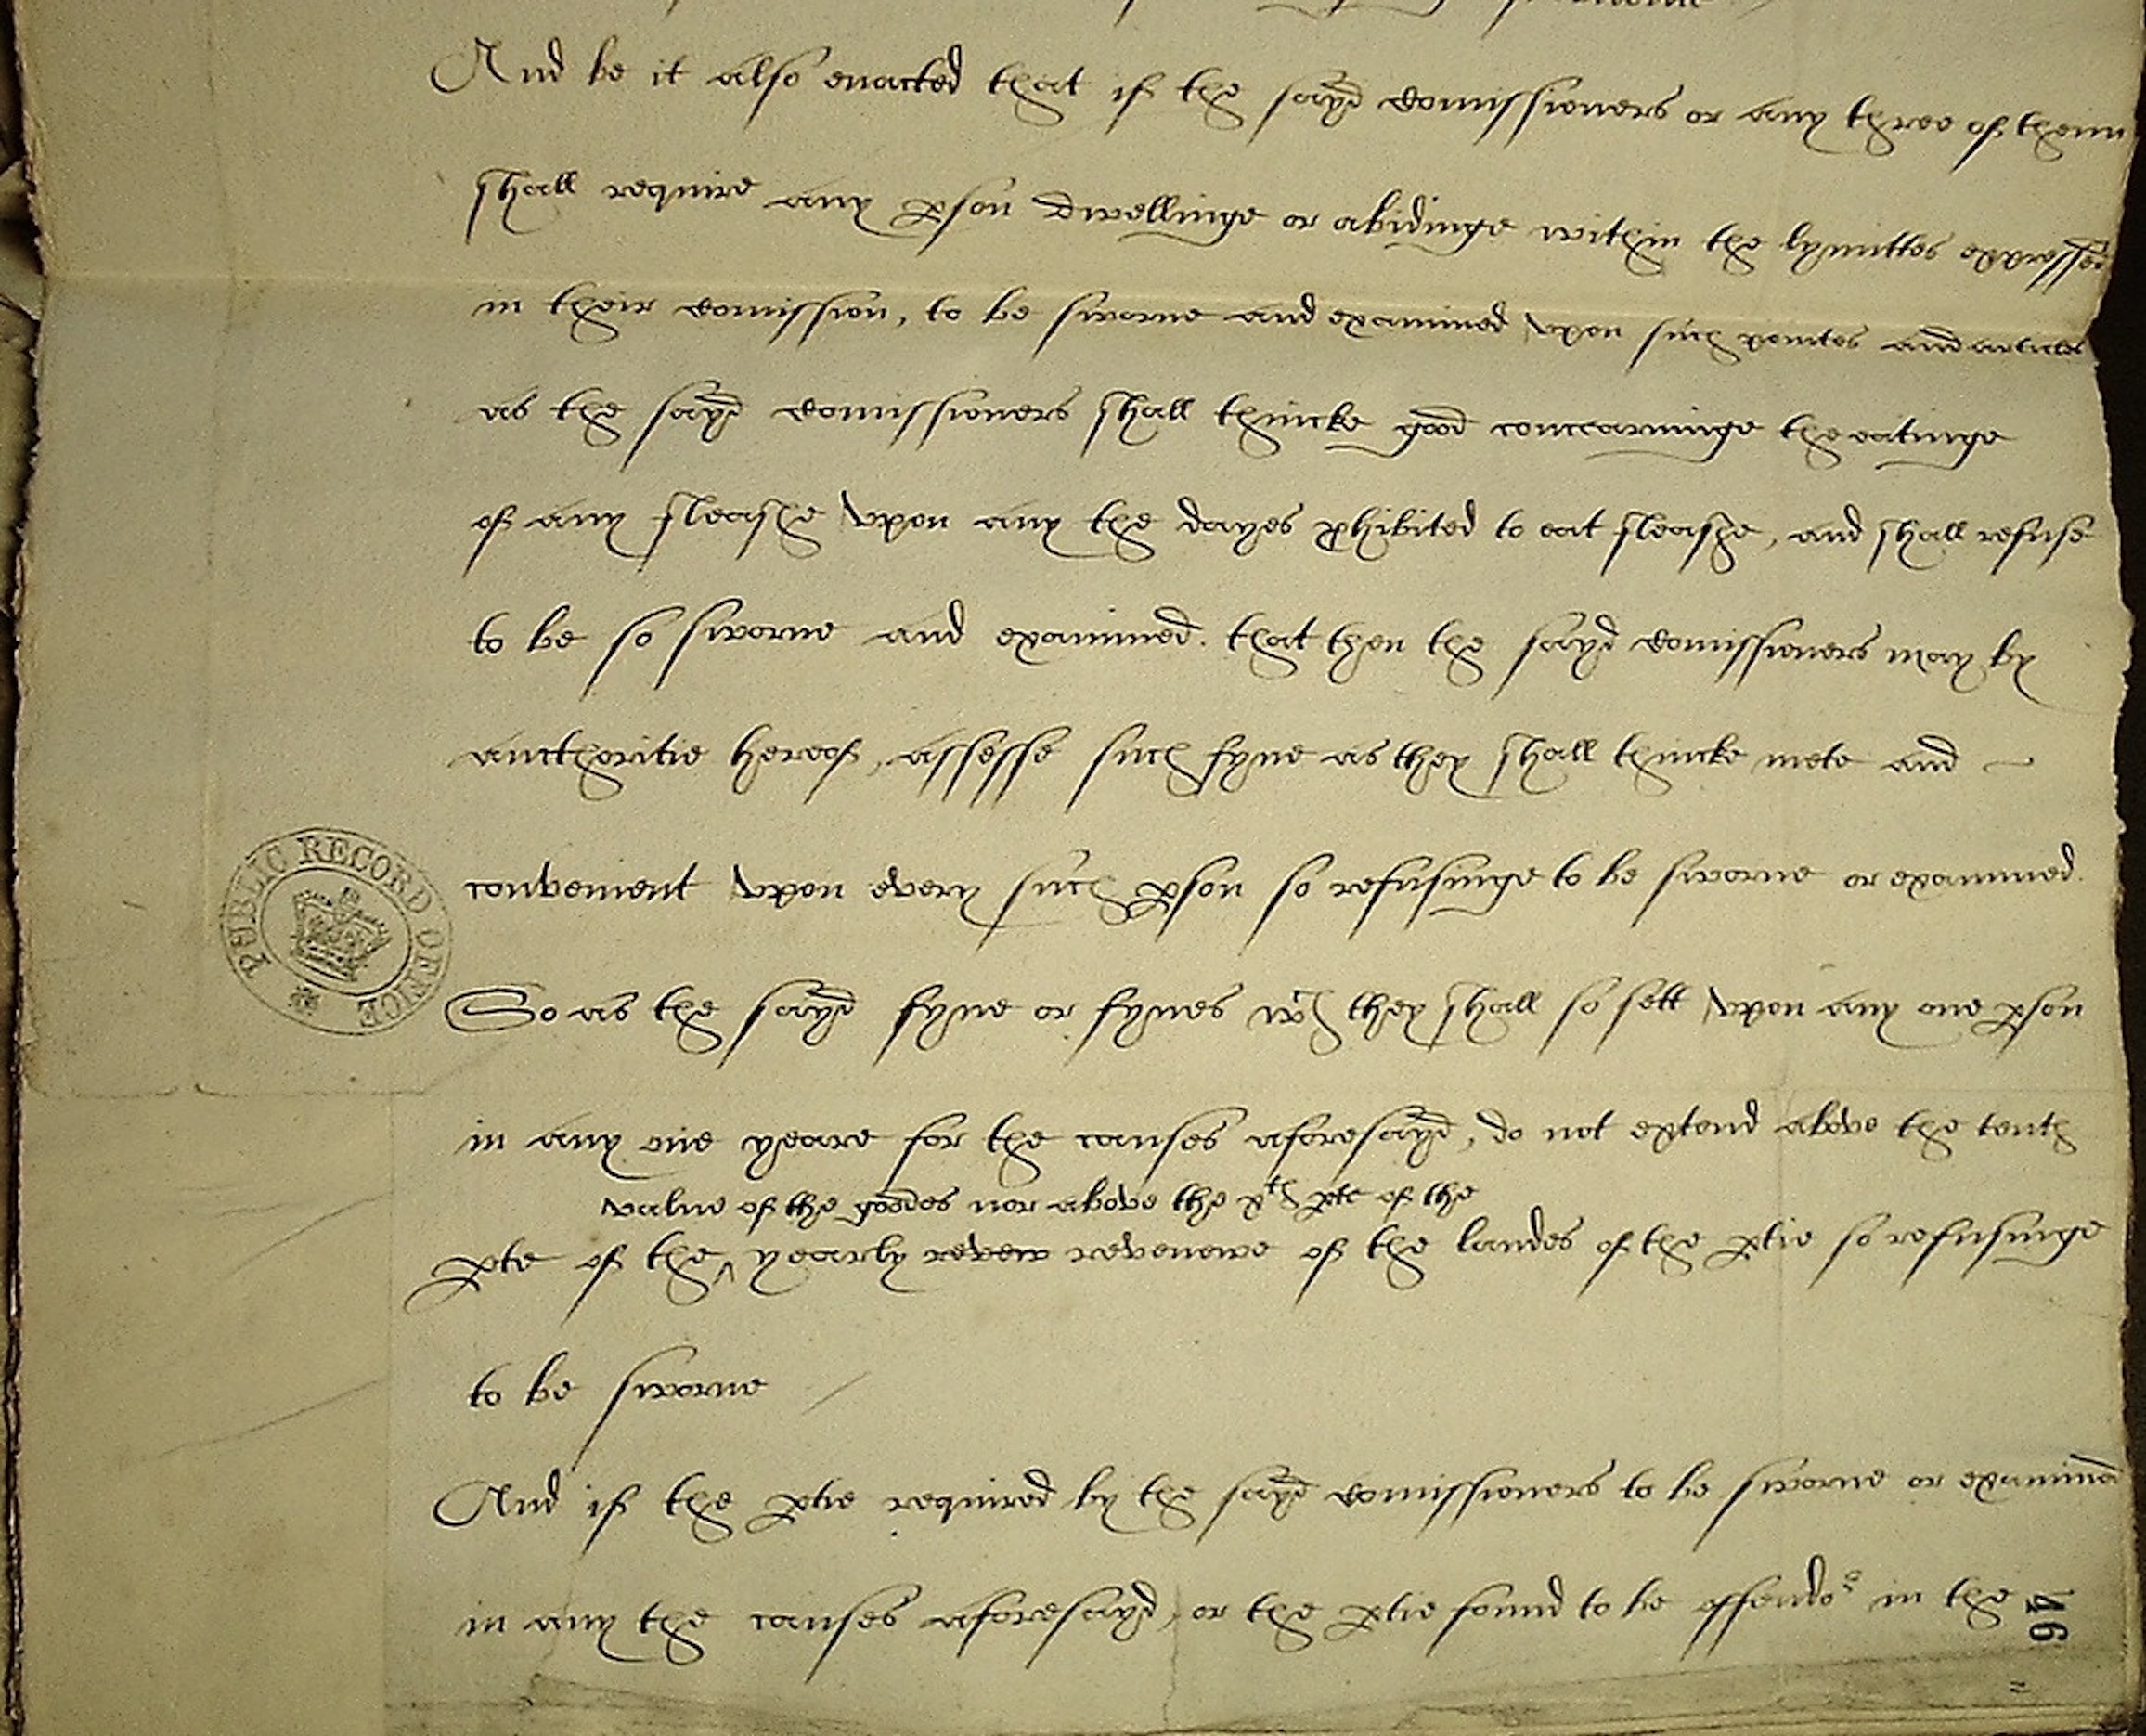 And be it also enacted that if the sayd comissioners or any three of theim
shall require any ꝑson dwellinge or abidinge within the lymittes expressed
in their comission, to be sworne and examined vpon such pointes and articles
as the sayd comissioners shall thincke good concearninge the eatinge
of any fleashe vpon any the dayes ꝓhibited to eat fleashe, and shall refuse
to be so sworne and examined. that then the sayd comissioners may by
aucthoritie hereof, assesse such fyne as they shall thincke mete and
convenient vpon every such ꝑson so refusinge to be sworne or examined.
So as the sayd fyne or fynes wch they shall so sett vpon any one ꝑson
in any one yeare for the causes aforesayd, do not extend above the tenth
value of the goodes nor above the xth ꝑte of the
ꝑte of the ^ yearly revew revenewe of the landes of the ꝑtie so refusinge
to be sworne
And if the ꝑtie required by the sayd comissioners to be sworne or examined
in any the causes aforesayd, or the ꝑtie found to be offendor in the
PUBLIC RECORD OFFICE
46